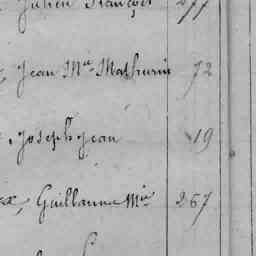 Julien François 277
Jean Mie Mathurin 72
Joseph Jean 19
Guillaume Mie 267